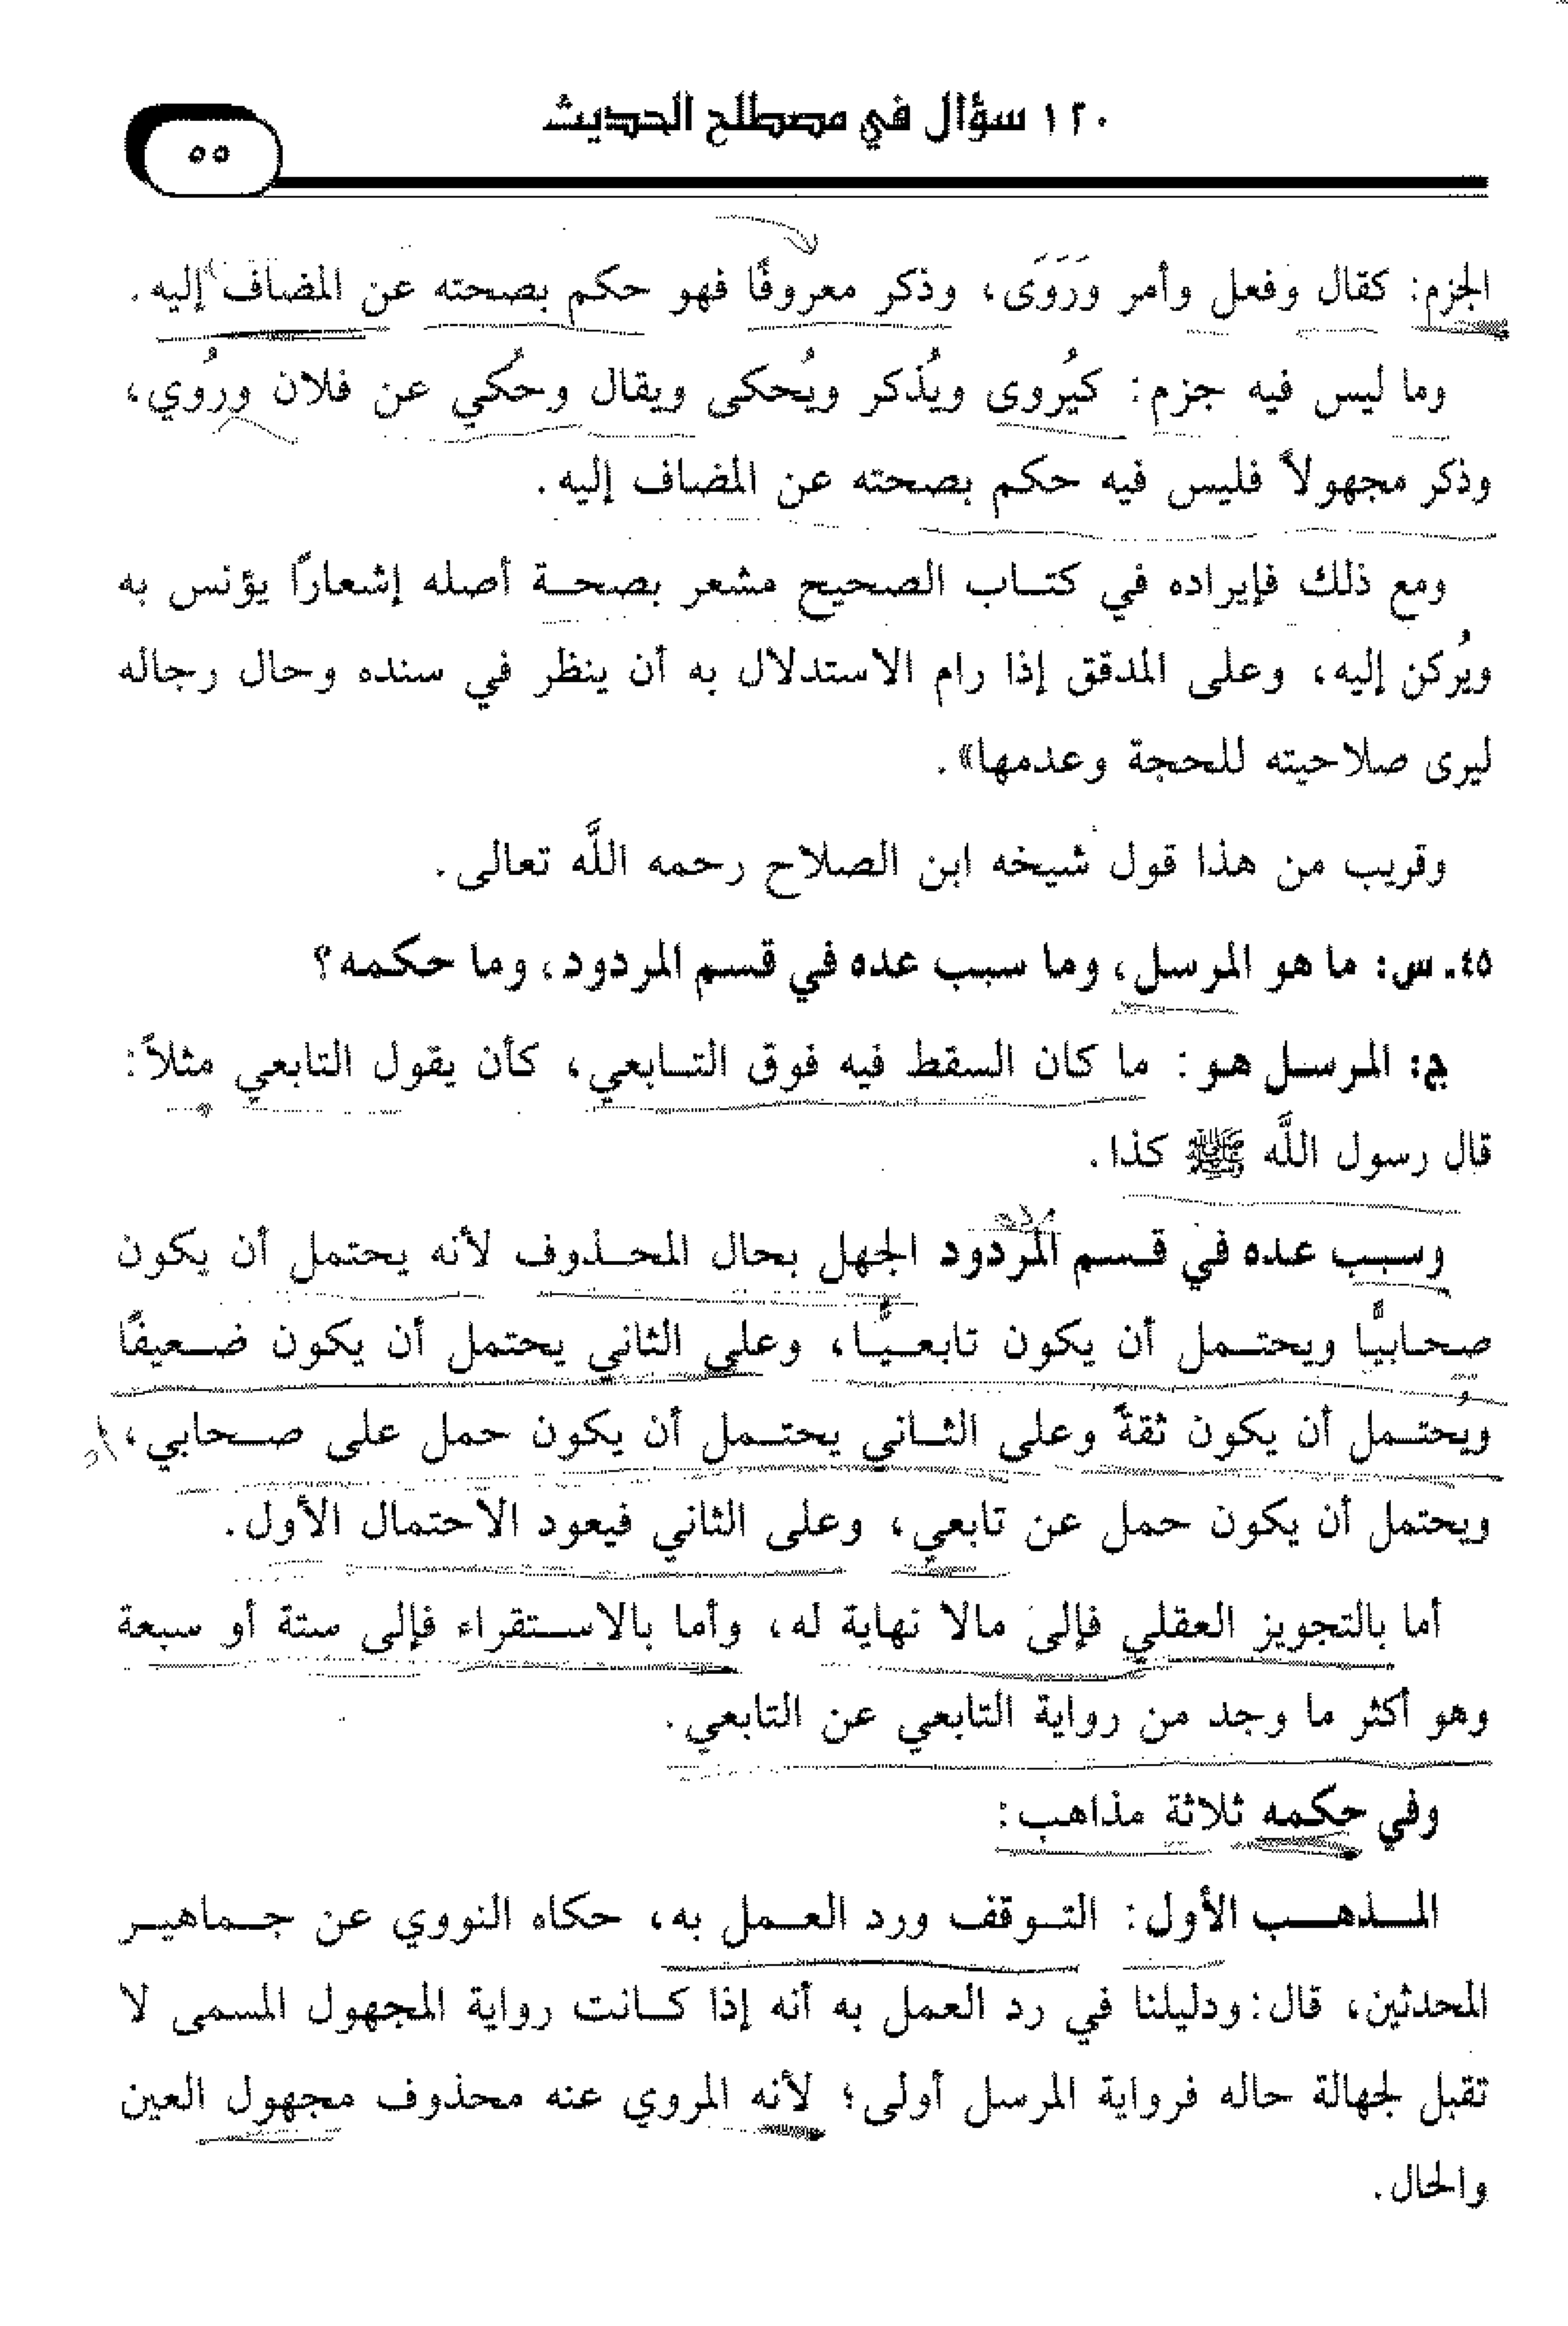 ١٢٠ سؤال في مصطلح الحديث
٥٥
الجزم: كقال وفعل وأمر ورَوَى، وذكر معروفًا فهو حكم بصحته عن المضاف إليه.
وما ليس فيه جزم: كيُروى ويُذكر ويُحكى ويقال وحُكي عن فلان ورُوي،
وذكر مجهولاً فليس فيه حكم بصحته عن المضاف إليه.
ومع ذلك فإيراده في كتـاب الصحيح مشعر بصحـة أصله إشعارًا يؤنس به
ويُركن إليه، وعلى المدقق إذا رام الاستدلال به أن ينظر في سنده وحال رجاله
ليرى صلاحيته للحجة وعدمها».
وقريب من هذا قول شيخه ابن الصلاح رحمه اللَّه تعالى.
٤٥ـ س: ما هو المرسل، وما سبب عده في قسم المردود، وما حكمه؟
ج: المرسل هو: ما كان السقط فيه فوق التـابعي، كأن يقول التابعي مثلاً:
قال رسول اللَّه ﷺ كذا.
وسبب عده في قسم المردود الجهل بحال المحـذوف لأنه يحتمل أن يكون
صحابيًّا ويحتـمل أن يكون تابعـيًّـا، وعلى الثاني يحتمل أن يكون ضـعيفًا
ويُحتـمل أن يكون ثقةً وعلى الثـاني يحتـمل أن يكون حمل على صـحابي،
ويحتمل أن يكون حمل عن تابعي، وعلى الثاني فيعود الاحتمال الأول.
أما بالتجويز العقلي فإلى مالا نهاية له، وأما بالاسـتقراء فإلى ستة أو سبعة
وهو أكثر ما وجد من رواية التابعي عن التابعي.
وفي حكمه ثلاثة مذاهب:
المـذهـب الأول: التـوقف ورد العـمل به، حكاه النووي عن جـماهيـر
المحدثين، قال: ودليلنا في رد العمل به أنه إذا كـانت رواية المجهول المسمى لا
تقبل لجهالة حاله فرواية المرسل أولى؛ لأنه المروي عنه محذوف مجهول العين
والحال.